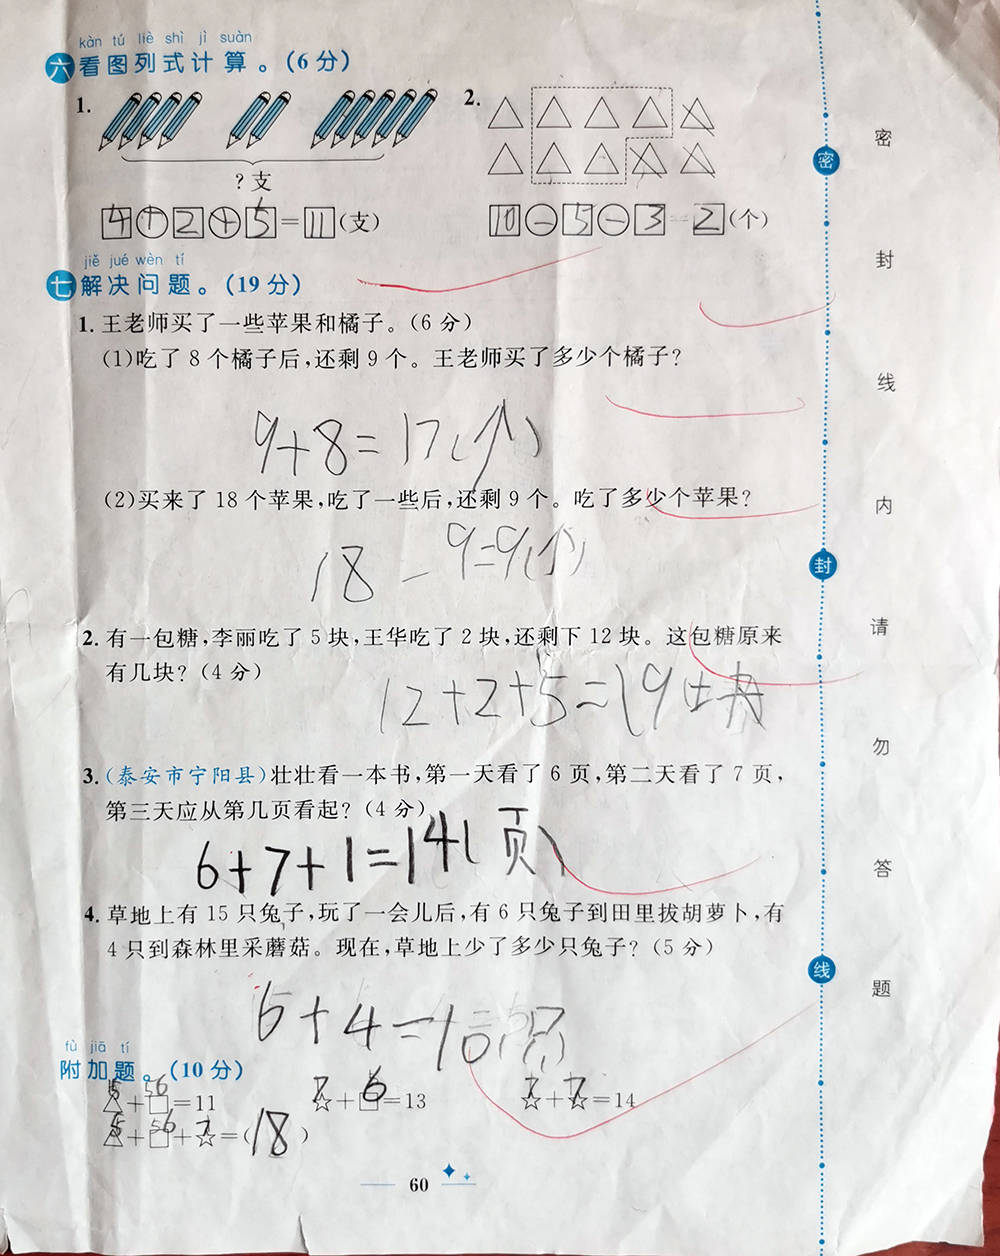 kàn tú liè shì jì suàn
六 看图列式计算。(6分)
1.
2.
?支
4+2+5=11(支)
10-5-3=2(个)
jiě jué wèn tí
七 解决问题。(19分)
1.王老师买了一些苹果和橘子。(6分)
(1)吃了8个橘子后,还剩9个。王老师买了多少个橘子?
9+8=17(个)
(2)买来了18个苹果,吃了一些后,还剩9个。吃了多少个苹果?
18-9=9(个)
2.有一包糖,李丽吃了5块,王华吃了2块,还剩下12块。这包糖原来
有几块?(4分)
12+2+5=19(块)
3.(泰安市宁阳县)壮壮看一本书,第一天看了6页,第二天看了7页,
第三天应从第几页看起?(4分)
6+7+1=14(页)
4.草地上有15只兔子,玩了一会儿后,有6只兔子到田里拔胡萝卜,有
4只到森林里采蘑菇。现在,草地上少了多少只兔子?(5分)
6+4=10(只)
fù jiā tí
附加题。(10分)
△+□=11 ☆+□=13 ☆+☆=14
5 6 7 6 7 7
△+□+☆=(18)
5 6 7
60
密
封
线
内
请
勿
答
题
密
封
线